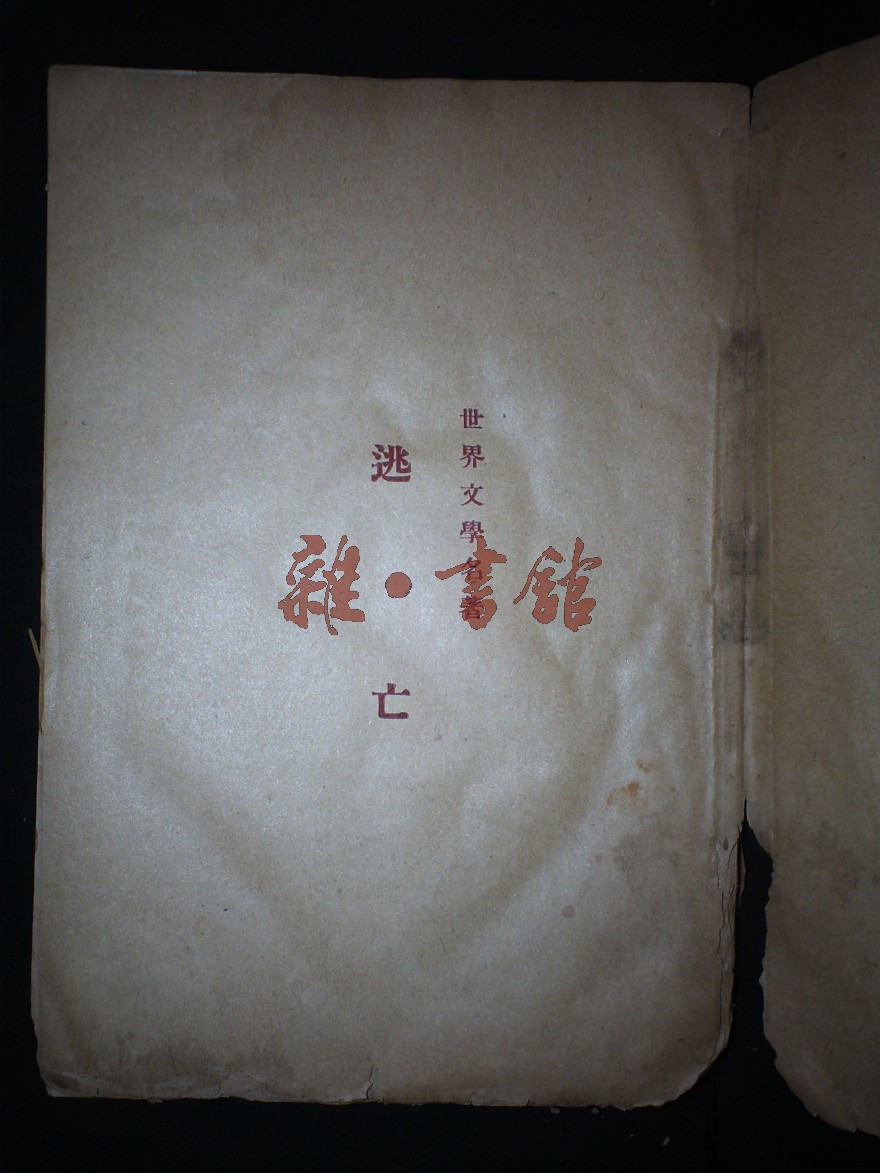 世界文學名著
逃亡
雜·書館